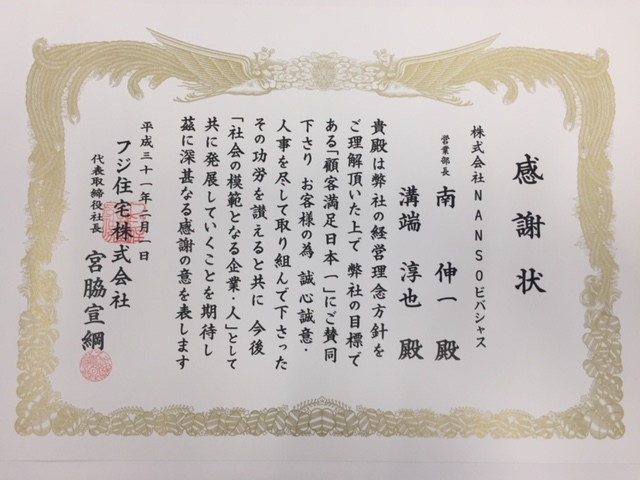 感謝状
株式会社NANSOビバシャス
営業部長 南 伸一 殿
溝端 淳也 殿
貴殿は弊社の経営理念方針を
ご理解頂いた上で 弊社の目標で
ある「顧客満足日本一」にご賛同
下さり お客様の為 誠心誠意・
人事を尽して取り組んで下さった
その功労を讃えると共に 今後
「社会の模範となる企業・人」として
共に発展していくことを期待し
茲に深甚なる感謝の意を表します
平成三十一年二月一日
フジ住宅株式会社
代表取締役社長 宮脇宣綱